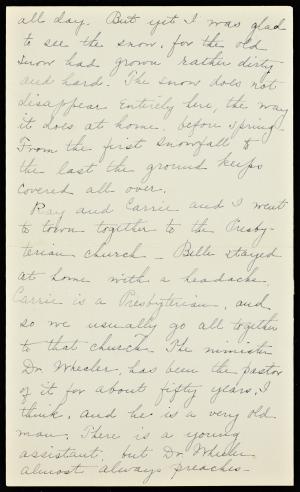 all day. But yet I was glad
to see the snow, for the old
snow had grown rather dirty
and hard. The snow does not
disappear entirely here, the way
it does at home, before spring.
From the first snowfall to
the last the ground keeps
covered all over.
Ray and Carrie and I went
to town together to the Presby-
terian church - Belle stayed
at home with a headache.
Carrie is a Presbyterian, and
so we usually go all together
to that church. The minister
Dr. Wheeler, has been the pastor
of it for about fifty years, I
think, and he is a very old
man. There is a young
assistant, but Dr. Wheeler
almost always preaches-